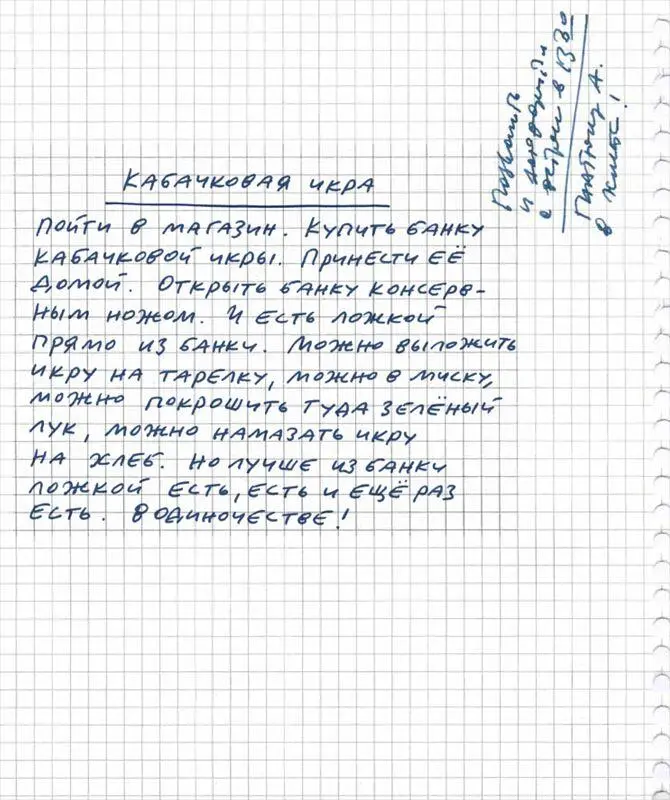 КАБАЧКОВАЯ ИКРА
ПОЙТИ В МАГАЗИН. КУПИТЬ БАНКУ
КАБАЧКОВОЙ ИКРЫ. ПРИНЕСТИ ЕЁ
ДОМОЙ. ОТКРЫТЬ БАНКУ КОНСЕРВ-
НЫМ НОЖОМ. И ЕСТЬ ЛОЖКОЙ
ПРЯМО ИЗ БАНКИ. МОЖНО ВЫЛОЖИТЬ
ИКРУ НА ТАРЕЛКУ, МОЖНО В МИСКУ,
МОЖНО ПОКРОШИТЬ ТУДА ЗЕЛЁНЫЙ
ЛУК, МОЖНО НАМАЗАТЬ ИКРУ
НА ХЛЕБ. НО ЛУЧШЕ ИЗ БАНКИ
ЛОЖКОЙ ЕСТЬ, ЕСТЬ И ЕЩЁ РАЗ
ЕСТЬ. В ОДИНОЧЕСТВЕ!
Позвонить
и
в 13 30